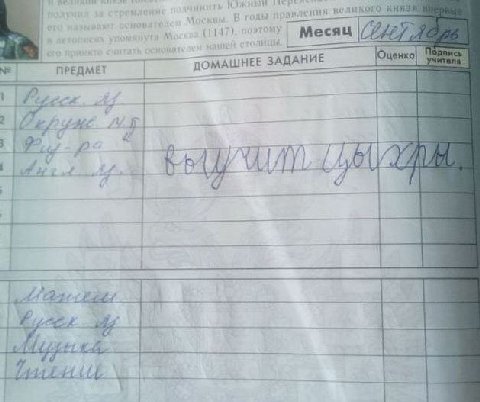 в великий князь
получил за стремление подчинить Южный
его называют основателем Москвы. В годы правления великого князя впервые
в летописях упомянута Москва (1147), поэтому
его принято считать основателем нашей столицы.
Месяц сентябрь
№ ПРЕДМЕТ ДОМАШНЕЕ ЗАДАНИЕ Оценка Подпись учителя
1 Русск. яз
2 Окруж
3 Физ-ра
4 Англ яз. выучит цыхры.
5
Матем
Русск яз
Музыка
Чтение